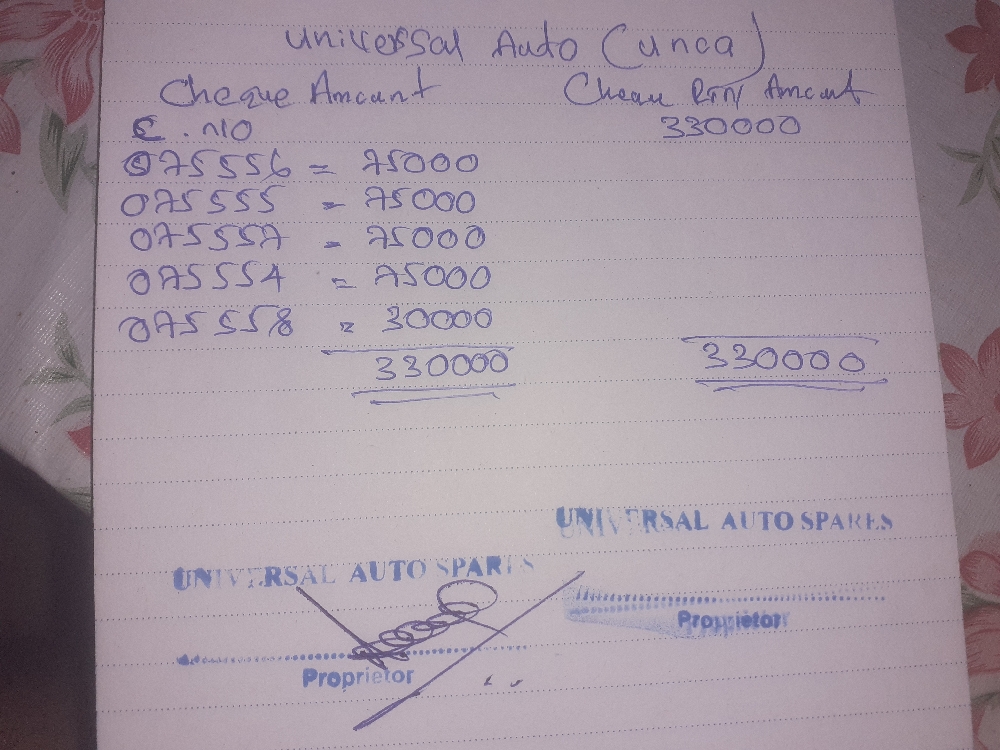 Universal Auto (unca)
Cheque Amount Cheau RTN Amount
C.NO 330000
075556 = 75000
075555 = 75000
075557 = 75000
075554 = 75000
075558 = 30000
330000 330000
UNIVERSAL AUTO SPARES
UNIVERSAL AUTO SPARES
Proprietor
Proprietor